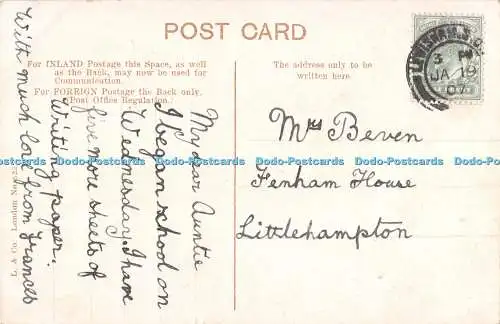 POST CARD
For INLAND Postage this Space, as well
as the Back, may now be used for
Communication.
For FOREIGN Postage the Back only.
(Post Office Regulation.)
The address only to be
written here.
3 P
JA 19
My dear Auntie
I began school on
Wednesday. I have
five more sheets of
Writing paper.
With much love from Frances
Mrs Beven
Fenham House
Littlehampton
L. & Co. London
Dodo-Postcards Dodo-Postcards Dodo-Postcards Dodo-Postcards Dodo-Postcards